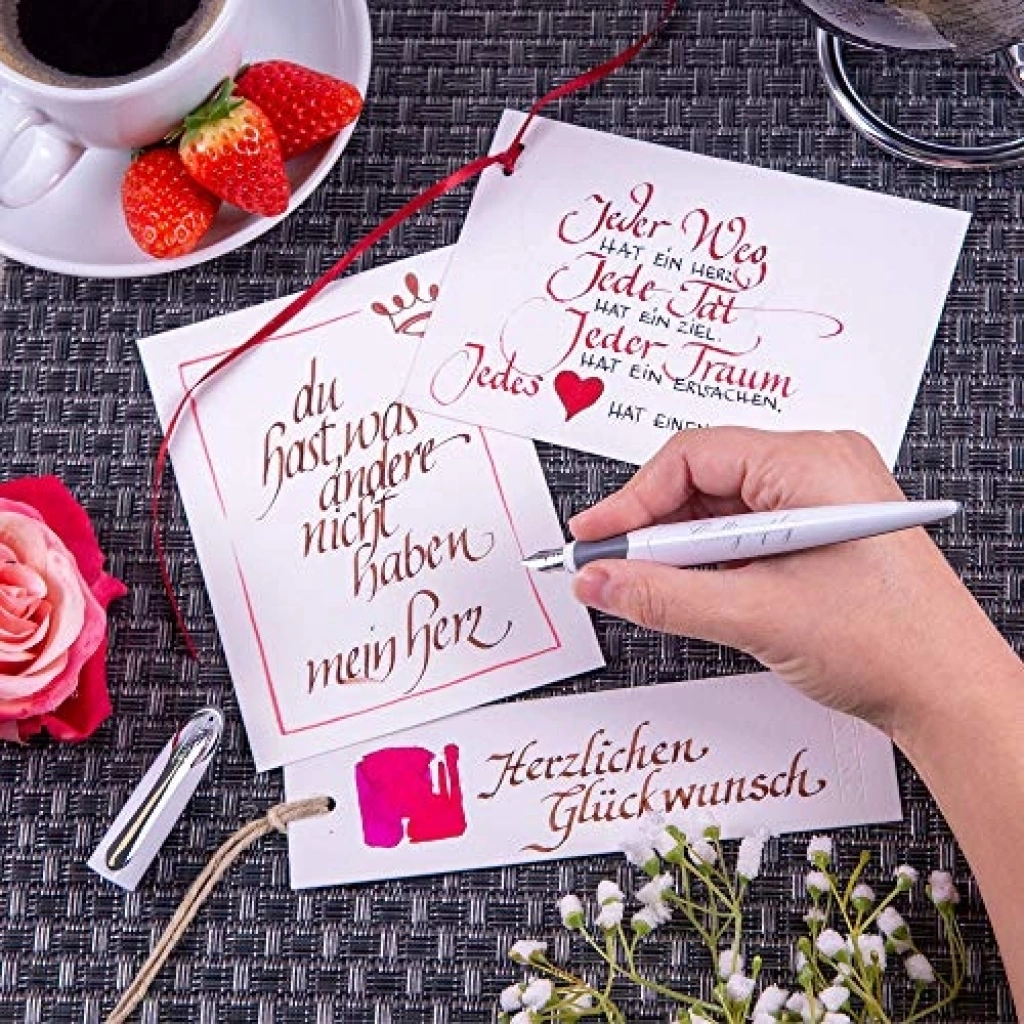 Jeder Weg
HAT EIN HERZ
Jede Tat
HAT EIN ZIEL.
Jeder Traum
HAT EIN ERWACHEN.
Jedes
HAT EINEN
du
hast, was
andere
nicht
haben
mein herz
Herzlichen
Glückwunsch